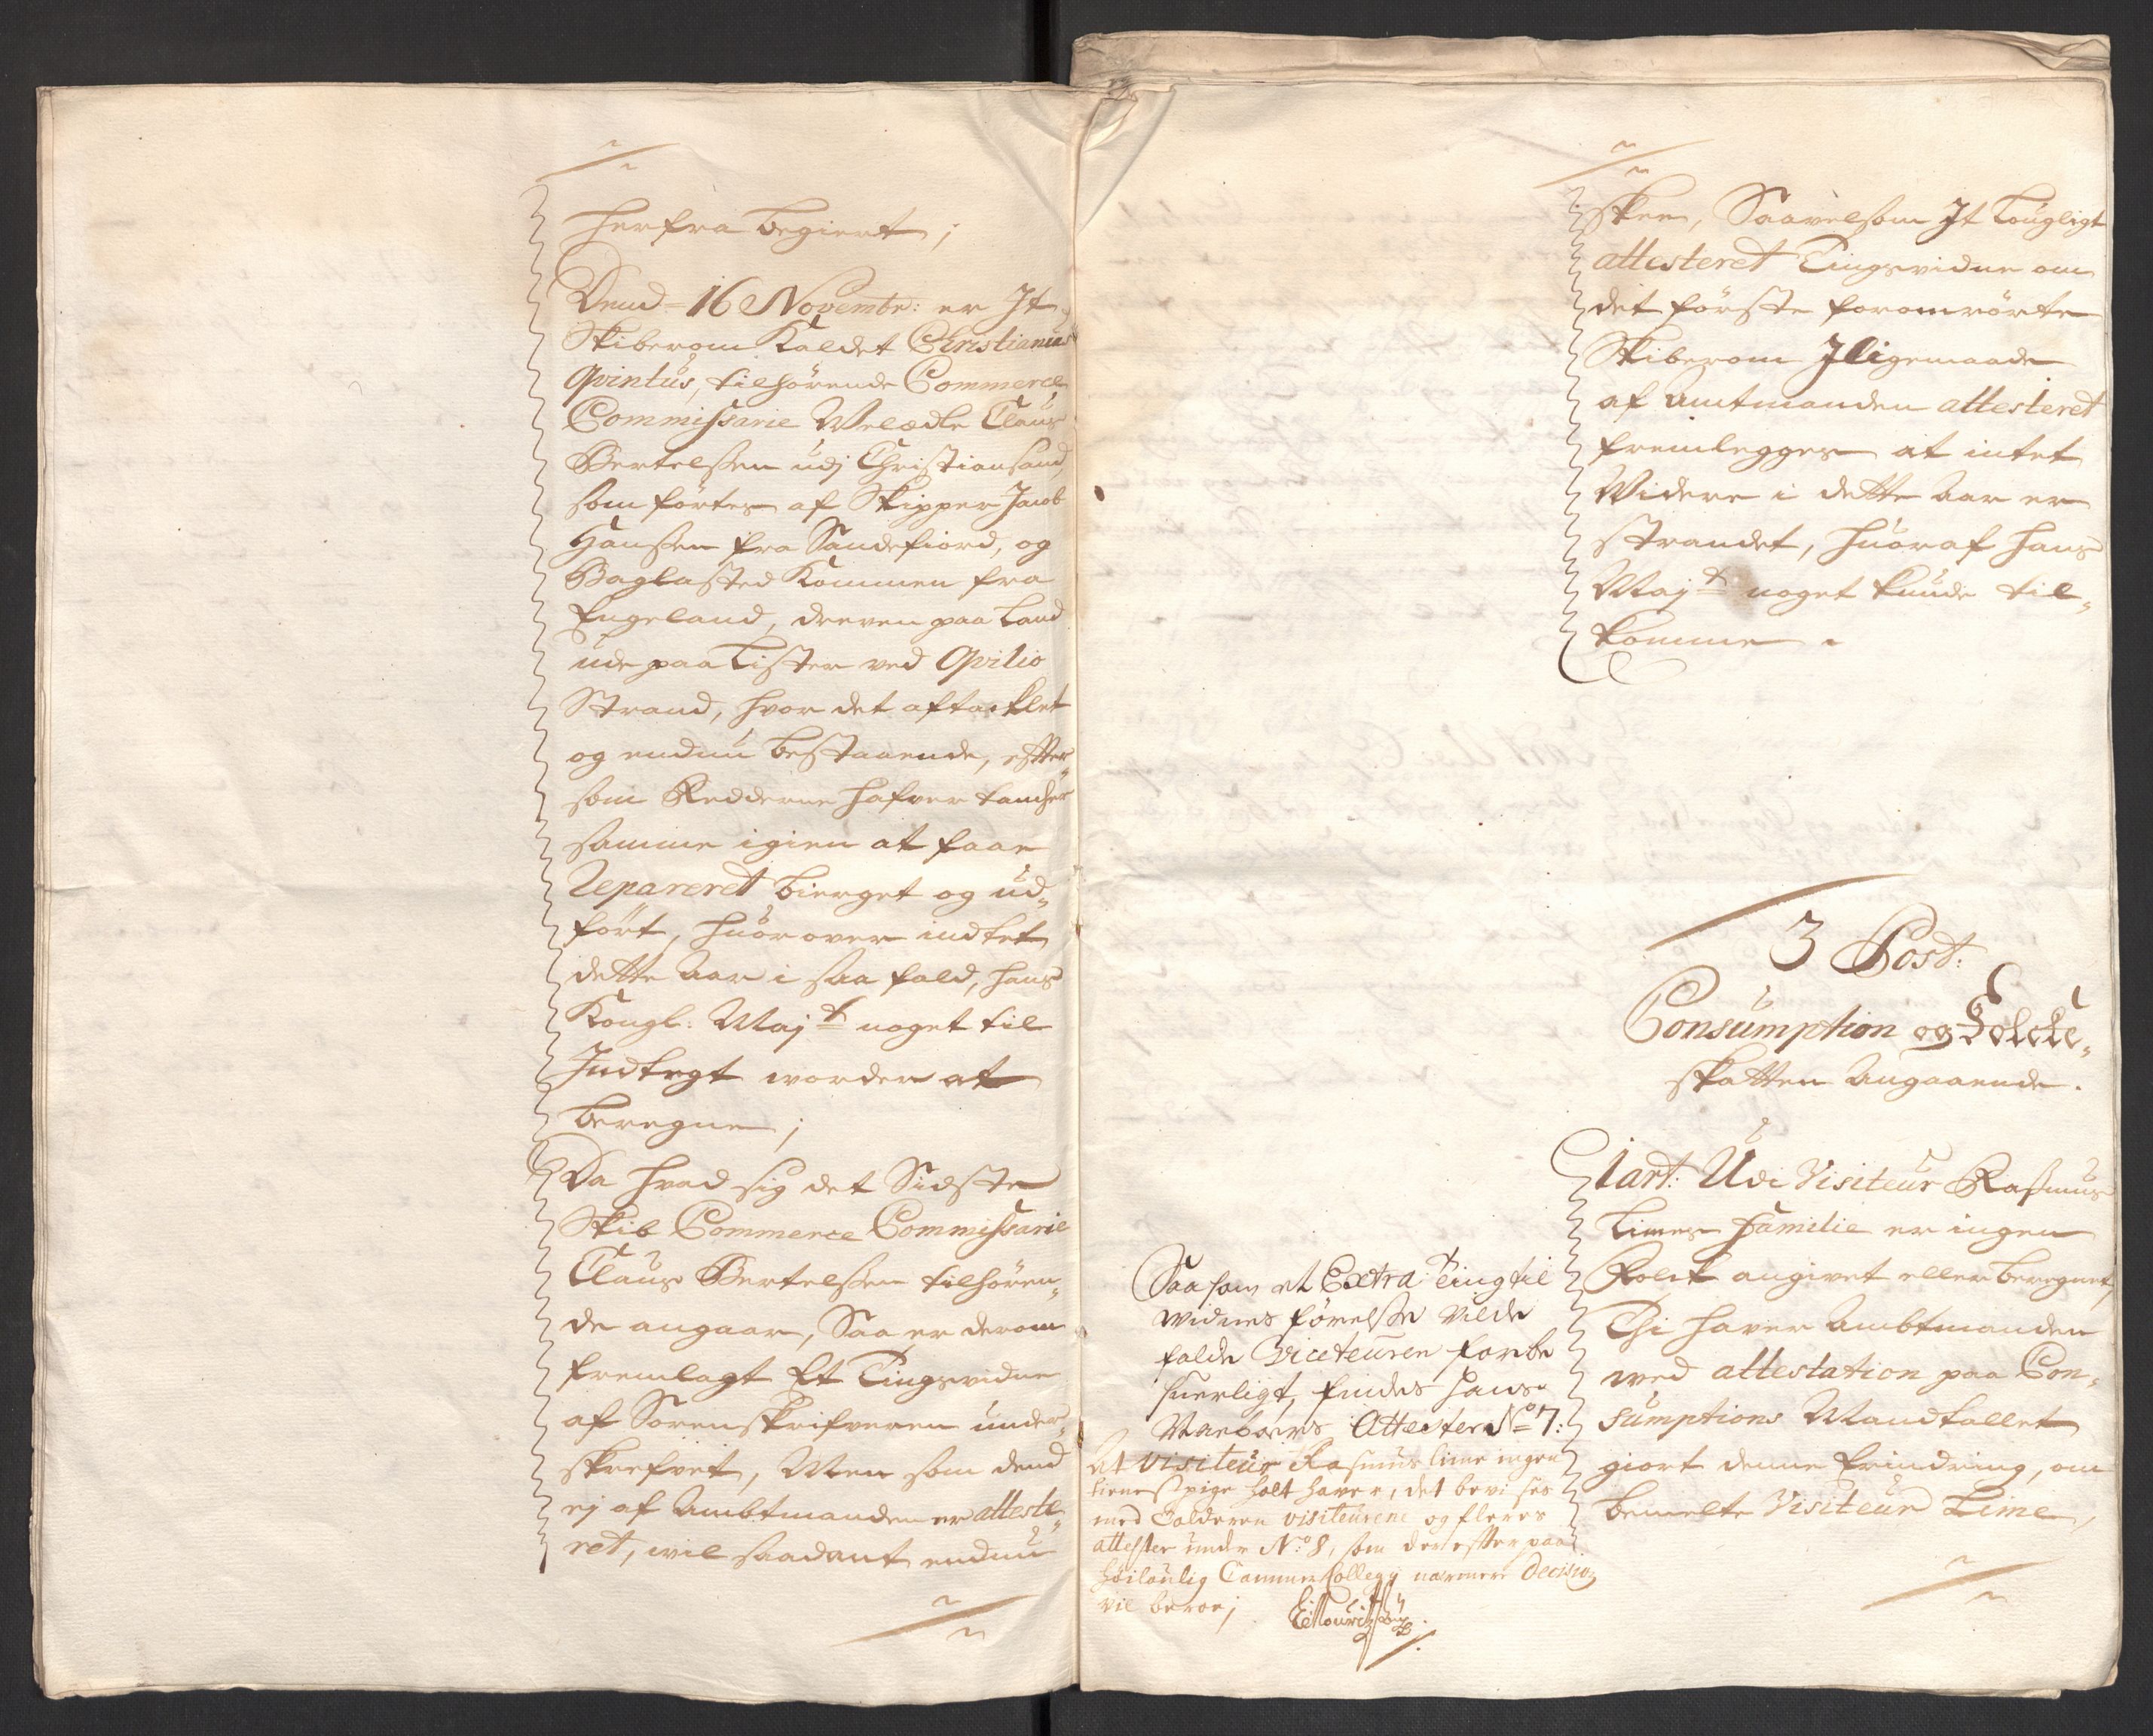 herfra begiert;
Dend 16 Novembr: er It
Skiberom Kaldet Christianus
Qvintus, tilhörende Commerce
Commissarie Welædle Claus
Bertelssen udj Christiansand,
som förtes af Skipper Jacob
Hanssen fra Sandefiord, og
Baglasted Kommen fra
Engeland, dreven paa Land
ude paa Lister ved Qvilio
Strand, hvor det aftacklet
og endnu bestaaende, effter,,
som Redderne hafver
samme igien at faae
Repareret bierget og ud,,
fört, huorover indtet
dette Aar i saa fald, hans
Kongl: Maj:t noget til
Indtegt worden at
beregne;
Da hvad sig det Sidste
Skib Commerce Commissarie
Claus Bertelssen tilhören,,
de angaar, Saa er derom
fremlagt Et Tingsvidne
af Sorenskrifveren under,,
skrefvet, Men som dend
ej af Ambtmanden er atteste,,
ret, wil saadant endnu
skee, Saavelsom It Lougligt
attesteret Tingsvidne om
det förste foromrörte
Skiberom Iligemaade
af Amtmanden attesteret
fremlegges at intet
Widere i dette Aar er
strandet, huoraf hans
Maj:t noget kunde til,,
komme.
3 Post:
Consumption og Folcke,,
skatten Angaaende.
1 art: Udi Visiteur Rasmus
Limes Familie er ingen
Folck angivet eller beregnet,
Thi haver Ambtmanden
med attestation paa Con,,
sumptions Mandtallet
giort denne Erindring, om
bemelte Visiteur Lime,
Saasom et Extra: Ting til
widnes förelse vilde
falde Viceteuren forbe
suerligt, findes hans
Naboers Attester No 7:
At Visiteur Rasmus Lime ingen
tieneste pige holt haver, det bevises
med Tolderen visiteurene og fleres
attester under No: 8, som dereffter paa
höilaulig Cammer Collegij nærmere Decision
vil beroe;